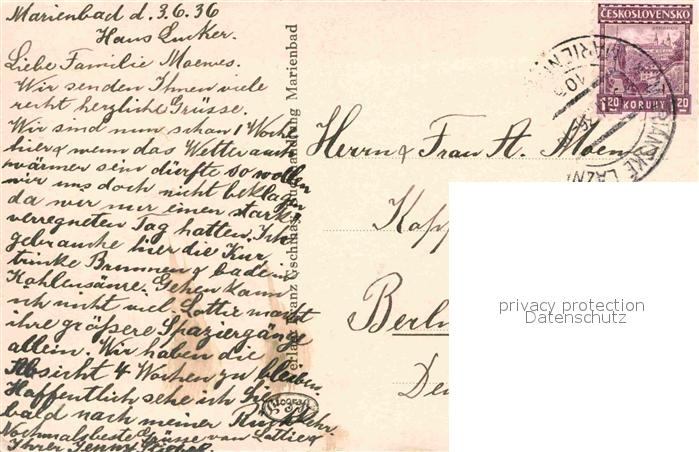 Marienbad d. 3.6.36
Haus Lucker.
Liebe Familie Moenes.
Wir senden Ihnen viele
recht herzliche Grüsse.
Wir sind nun schon 1 Woche
hier & wenn das Wetter auch
wärmer sein dürfte so wollen
wir uns doch nicht beklagen
da wir nur einen stark
verregneten Tag hatten. Ich
gebrauche hier die Kur
trinke Brunnen & bade in
Kohlensäure. Gehen kann
ich nicht viel. Lotte macht
ihre größere Spaziergänge
allein. Wir haben die
Absicht 4 Wochen zu bleiben
Hoffentlich sehe ich Sie
bald nach meiner Rückkehr.
Nochmals beste Grüsse von Lottie &
Ihrer Jenny
Verlag Franz Gschihay, Buchhandlung Marienbad
fotograf
ČESKOSLOVENSKO
1.20 KORUNY 1.20
MARIÁNSKÉ LÁZN
MARIEN
Herrn & Frau A. Moen
Kapp
Berl
De
privacy protection
Datenschutz